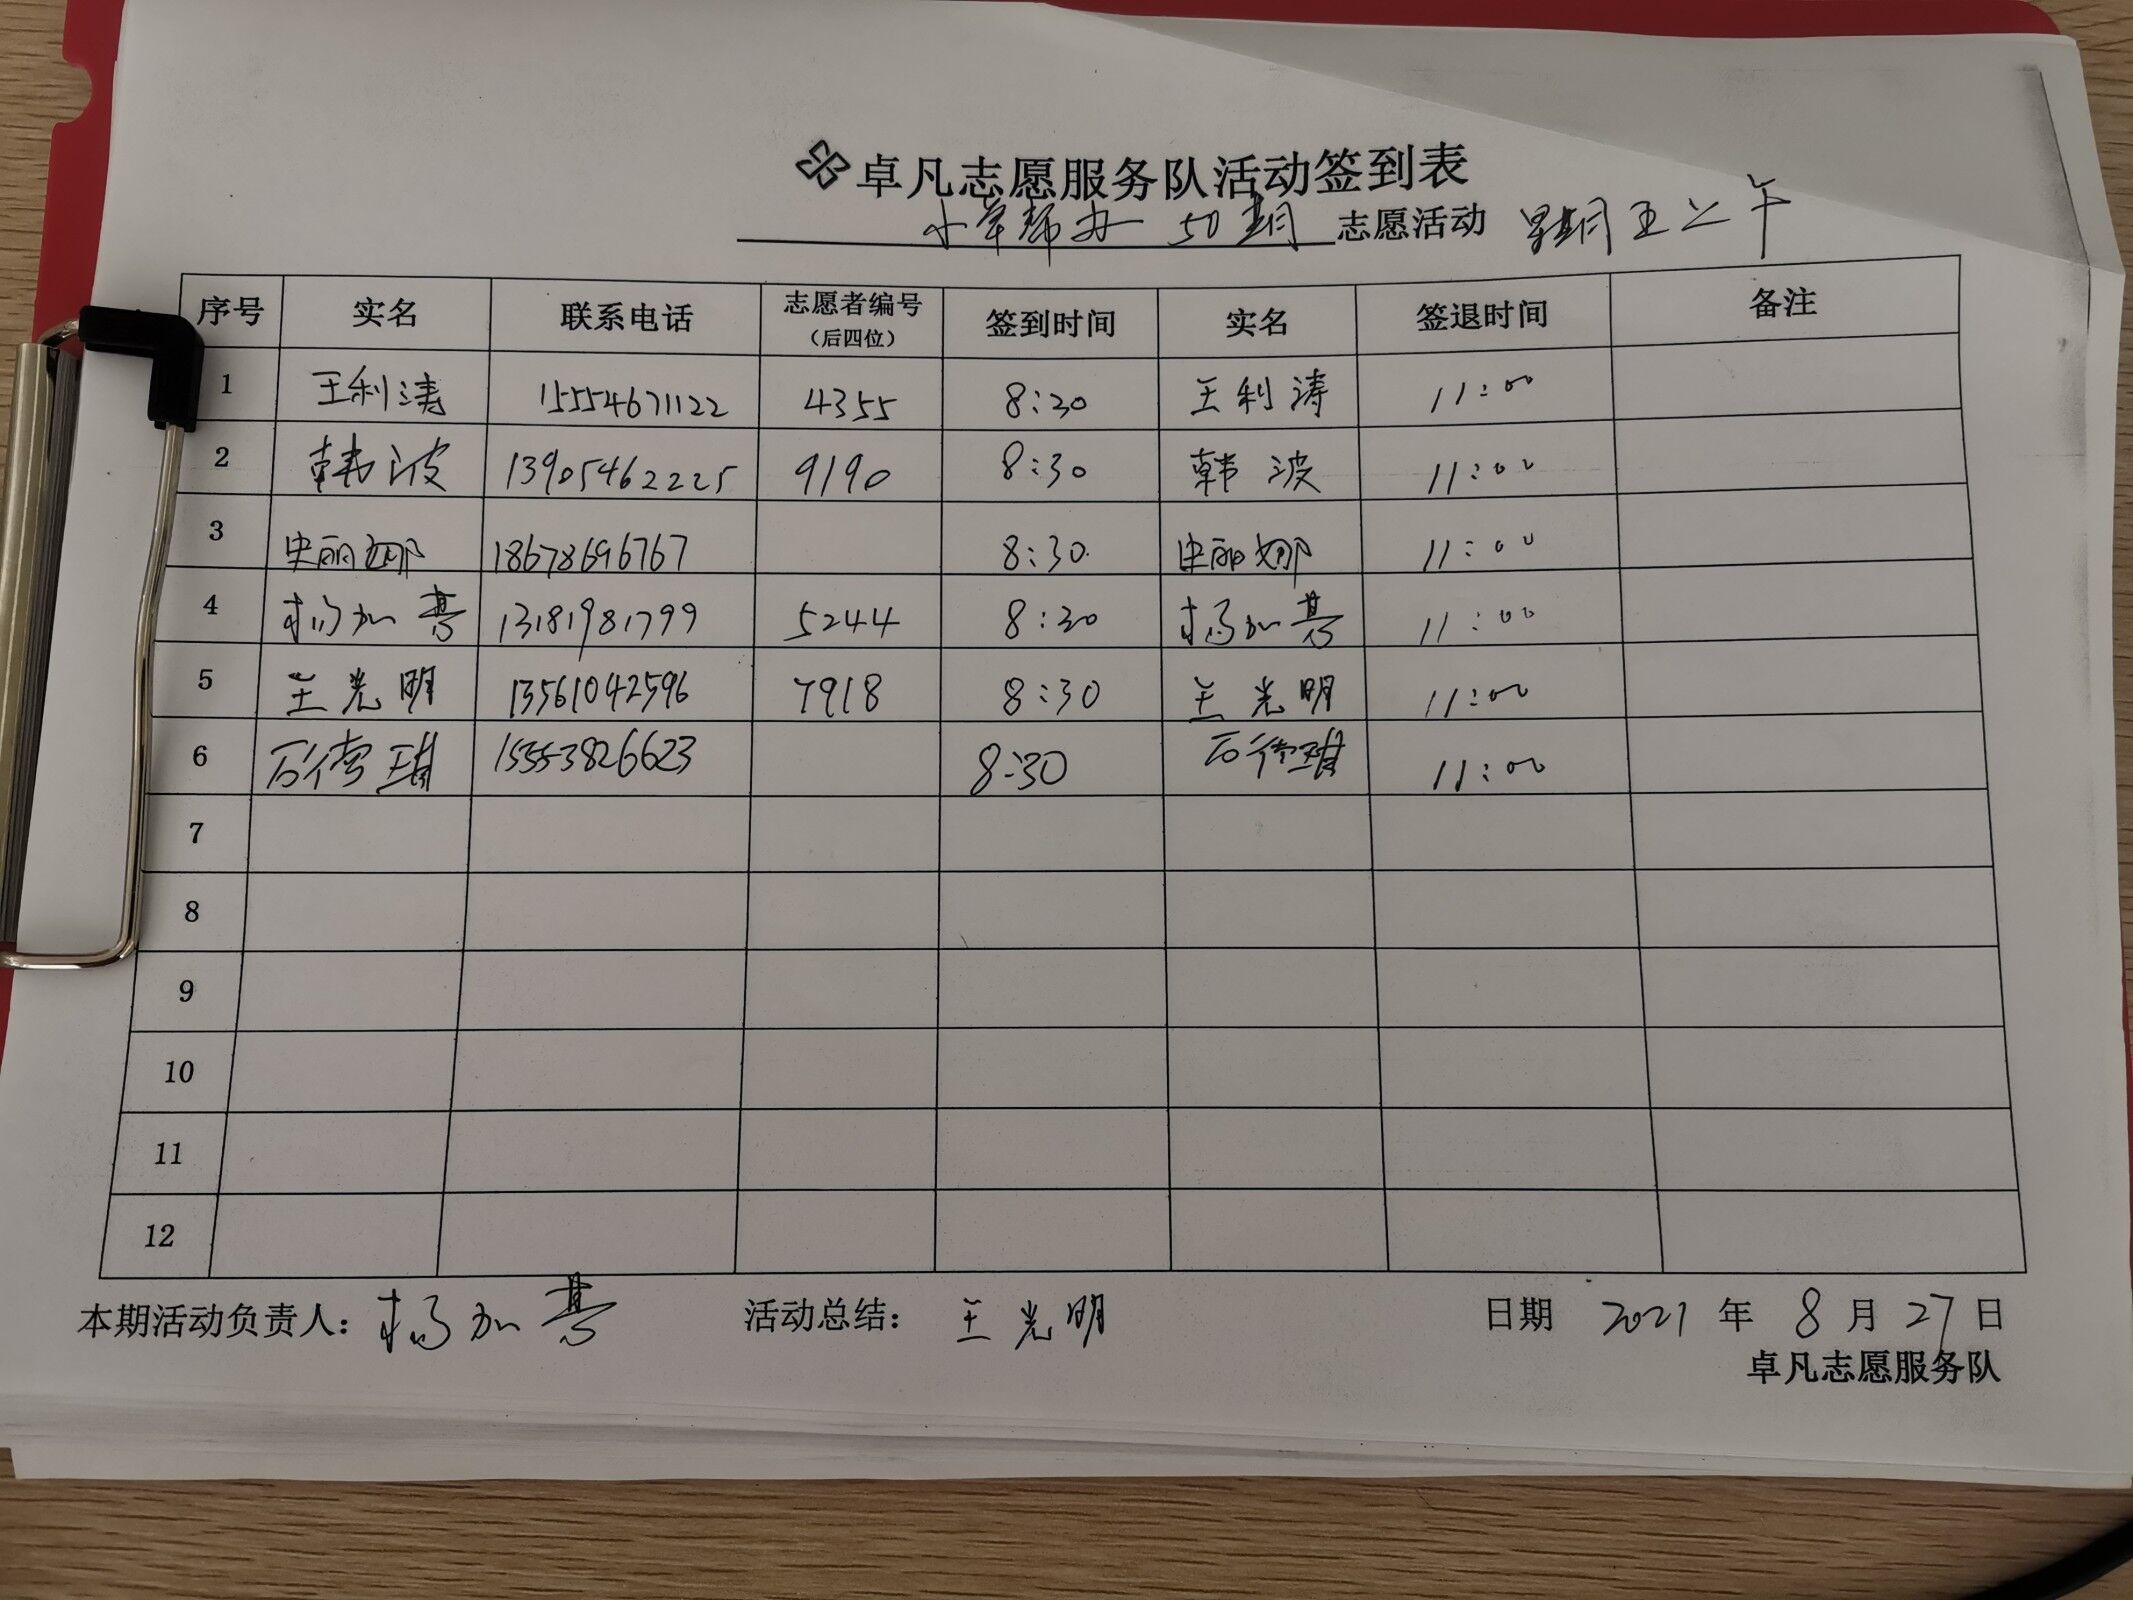 卓凡志愿服务队活动签到表
小草帮办 50期 志愿活动 星期五上午
序号 实名 联系电话 志愿者编号（后四位） 签到时间 实名 签退时间 备注
1 王利涛 15554671122 4355 8:30 王利涛 11:00
2 韩波 13905462225 9190 8:30 韩波 11:00
3 史丽娜 18678696767 8:30 史丽娜 11:00
4 杨加善 13181981799 5244 8:30 杨加善 11:00
5 王光明 13561042596 7918 8:30 王光明 11:00
6 石德琪 15553826623 8:30 石德琪 11:00
7
8
9
10
11
12
本期活动负责人：杨加善 活动总结：王光明 日期 2021 年 8 月 27 日
卓凡志愿服务队